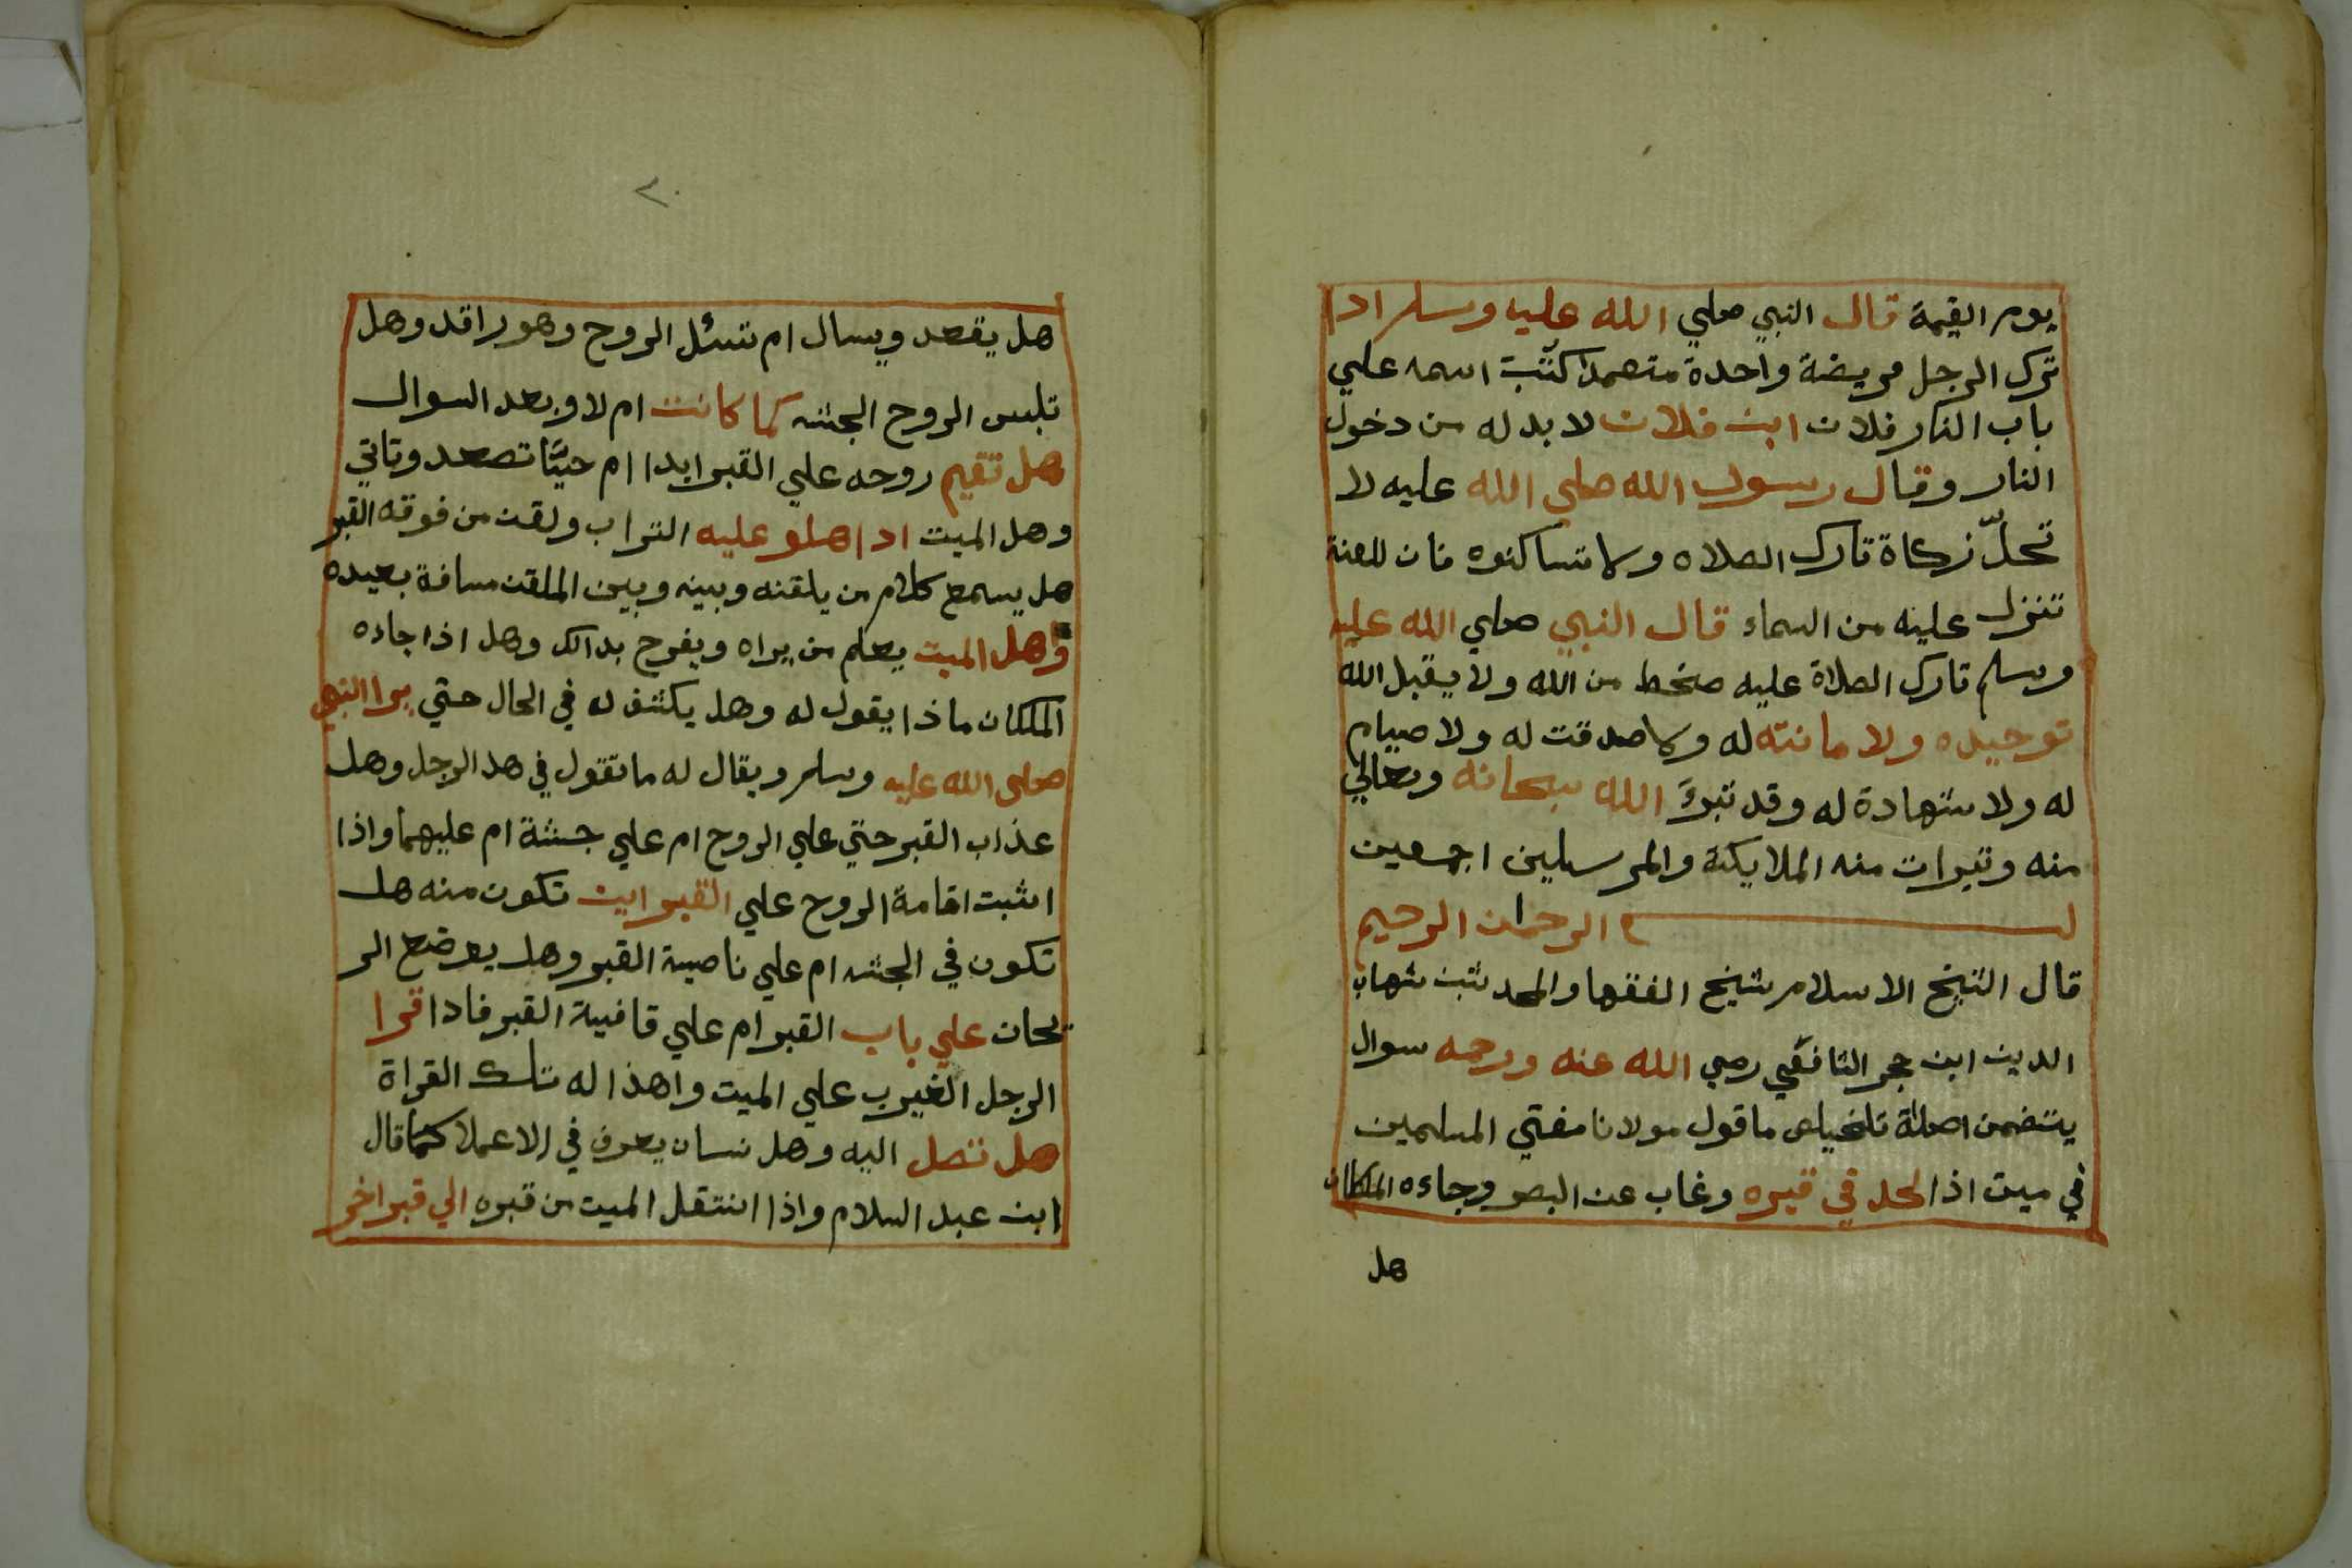 يوم القيمة قال النبي صلي الله عليه وسلم ادا
ترك الرجل فريضة واحدة متعمدا كتب اسمه علي
باب النار فلان ابن فلان لا بد له من دخول
النار وقال رسول الله صلي الله عليه لا
تحلّ زكاة تارك الصلاه ولا تساكنوه فان للعنة
تنزل عليه من السماء قال النبي صلي الله عليه
وسلم تارك الصلاة عليه صخط من الله ولا يقبل الله
توحيده ولا مانته له ولا صدقت له ولا صيام
له ولا شهادة له وقد تبرئ الله سبحانه وتعالي
منه وتبرات منه الملايكة والمرسلين اجمعين
بسم الرحمان الرحيم
قال الشيخ الاسلام شيخ الفقها والمحدثين شهاب
الدين ابن حجر الشافعي رضي الله عنه ورحمه سوال
يتضمن ما قول مولانا مفتي المسلمين
في ميت اذا الحد في قبره وغاب عن البصر وجاءه الملكان
هل
٢٠
هل يقعد ويسال ام تسئل الروح وهو راقد وهل
تلبس الروح الجثه كما كانت ام لا وبعد السوال
هل تقيم روحه علي القبر ابدا ام حيتا تصعد وتاتي
وهل الميت ادا هلو عليه التراب ولقن من فوقه القبر
هل يسمع كلام من يلقنه وبينه وبين الملقن مسافة بعيده
وهل الميت يعلم من يراه ويفرح بدالك وهل اذا جاءه
الملكان ماذا يقول له وهل يكشف له في الحال حتي يرا النبي
صلي الله عليه وسلم ويقال له ما تقول في هد الرجل وهل
عذاب القبر حتي علي الروح ام علي جسثة ام عليهما واذا
اثبت اقامة الروح علي القبر اين تكون منه هل
تكون في الجثه ام علي ناصية القبر وهل يوضع الر
يحان علي باب القبر ام علي قافية القبر فادا قرا
الرجل الغيرب علي الميت واهذا له تلك القراة
هل تصل اليه وهل نسان يعرف في الاعملا كما قال
ابن عبد السلام واذا انتقل الميت من قبره الي قبر اخر